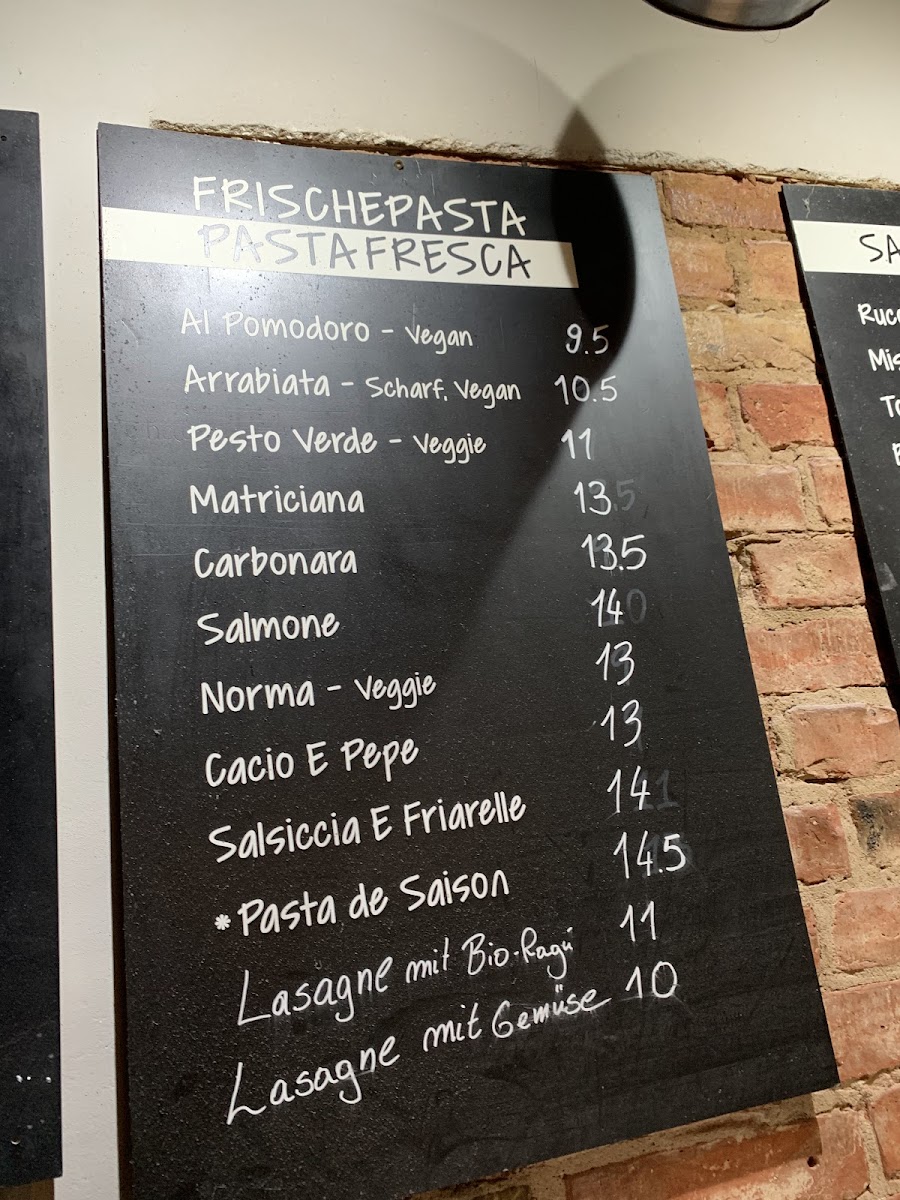 FRISCHEPASTA
PASTAFRESCA
Al Pomodoro - Vegan 9.5
Arrabiata - Scharf, Vegan 10.5
Pesto Verde - Veggie 11
Matriciana 13
Carbonara 13.5
Salmone 14
Norma - Veggie 13
Cacio E Pepe 13
Salsiccia E Friarelle 14
*Pasta de Saison 14.5
Lasagne mit Bio-Ragú 11
Lasagne mit Gemüse 10
SA
Ruc
Mis
To